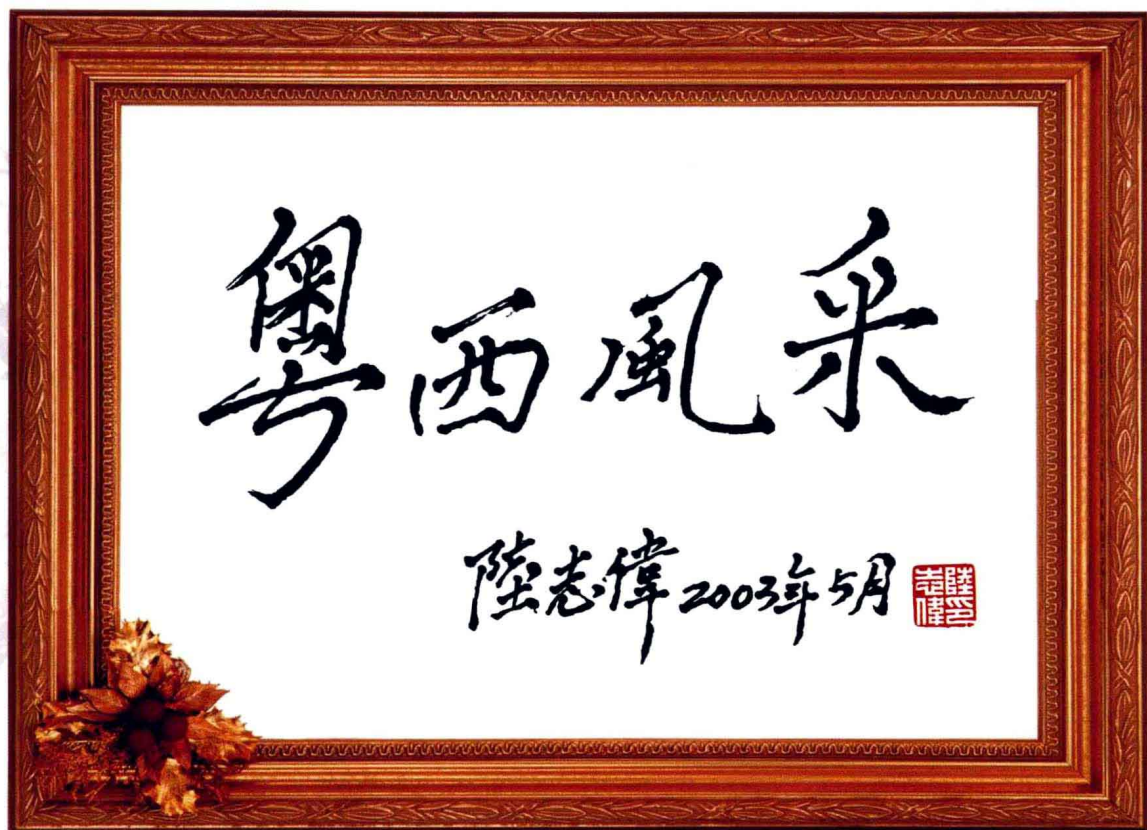 粤西風采
陸志偉 2003年5月
陸志偉印